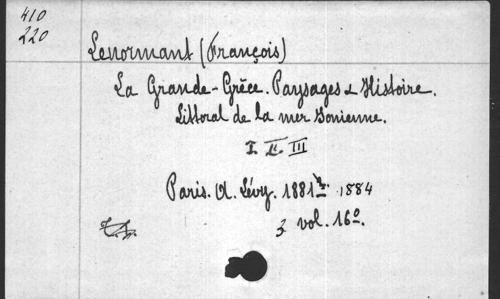 410
220
Lenormant (François)
La Grande-Grèce. Paysages & Histoire.
Littoral de la mer Ionienne.
I. II. III
Paris. A. Lévy. 1881 1884
3 vol. 16º.